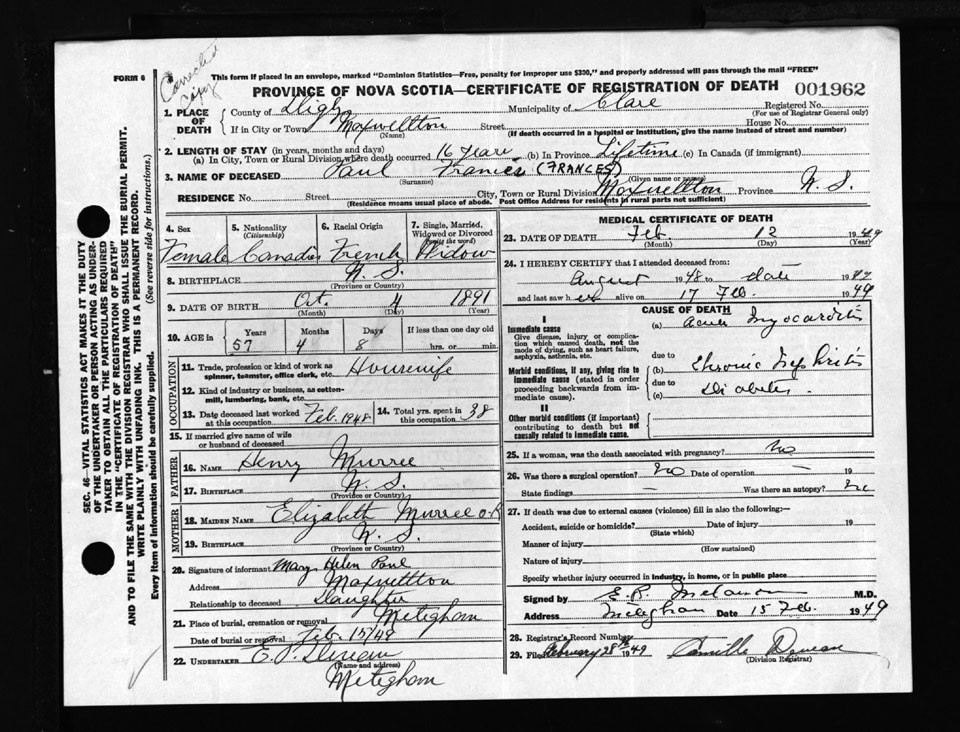 Corrected
Copy
FORM 6
This form if placed in an envelope, marked "Dominion Statistics—Free, penalty for improper use $300," and properly addressed will pass through the mail "FREE"
PROVINCE OF NOVA SCOTIA—CERTIFICATE OF REGISTRATION OF DEATH 001962
1. PLACE OF DEATH County of Digby Municipality of Clare Registered No.
(For use of Registrar General only)
If in City or Town Maxwellton Street House No.
(Name) (If death occurred in a hospital or institution, give the name instead of street and number)
2. LENGTH OF STAY (in years, months and days)
(a) In City, Town or Rural Division where death occurred 16 years (b) In Province Lifetime (c) In Canada (if immigrant)
3. NAME OF DECEASED Paul Frances (FRANCES)
(Surname) (Given name or names)
RESIDENCE No. Street City, Town or Rural Division Maxwellton Province N. S.
(Residence means usual place of abode. Post Office Address for residents in rural parts not sufficient)
4. Sex 5. Nationality (Citizenship) 6. Racial Origin 7. Single, Married, Widowed or Divorced (write the word)
Female Canadian French Widow
8. BIRTHPLACE N. S.
(Province or Country)
9. DATE OF BIRTH Oct. 4 1891
(Month) (Day) (Year)
10. AGE in Years Months Days If less than one day old
57 4 8 hrs. or min.
OCCUPATION
11. Trade, profession or kind of work as spinner, teamster, office clerk, etc. Housewife
12. Kind of industry or business, as cotton-mill, lumbering, bank, etc.
13. Date deceased last worked at this occupation Feb. 1948 14. Total yrs. spent in this occupation 38
15. If married give name of wife or husband of deceased
FATHER
16. NAME Henry Murree
17. BIRTHPLACE N. S.
(Province or Country)
MOTHER
18. MAIDEN NAME Elizabeth Murree
19. BIRTHPLACE N. S.
(Province or Country)
20. Signature of informant Mary Helen Paul
Address Maxwellton
Relationship to deceased Daughter
21. Place of burial, cremation or removal Meteghan
Date of burial or removal Feb. 15/49
22. UNDERTAKER E. P.
(Name and address)
Meteghan
MEDICAL CERTIFICATE OF DEATH
23. DATE OF DEATH Feb. 12 1949
(Month) (Day) (Year)
24. I HEREBY CERTIFY that I attended deceased from:
August 1948 to date 19
and last saw her alive on 17 Feb. 1949
CAUSE OF DEATH
I
Immediate cause
Give disease, injury or complication which caused death, not the mode of dying, such as heart failure, asphyxia, asthenia, etc.
(a) Acute Myocarditis
due to
Morbid conditions, if any, giving rise to immediate cause (stated in order proceeding backwards from immediate cause).
(b) Chronic Nephritis
due to
(c) Diabetes
II
Other morbid conditions (if important) contributing to death but not causally related to immediate cause.
25. If a woman, was the death associated with pregnancy? no
26. Was there a surgical operation? no Date of operation — 19
State findings — Was there an autopsy? no
27. If death was due to external causes (violence) fill in also the following:—
Accident, suicide or homicide? Date of injury 19
(State which)
Manner of injury
(How sustained)
Nature of injury
Specify whether injury occurred in industry, in home, or in public place
Signed by E. P. Melanson M.D.
Address Meteghan Date 15 Feb. 1949
28. Registrar's Record Number
29. Filed February 28th 1949 Camille
(Division Registrar)
SEC. 46—VITAL STATISTICS ACT MAKES IT THE DUTY
OF THE UNDERTAKER OR PERSON ACTING AS UNDER-
TAKER TO OBTAIN ALL THE PARTICULARS REQUIRED
IN THE "CERTIFICATE OF REGISTRATION OF DEATH"
AND TO FILE THE SAME WITH THE DIVISION REGISTRAR WHO SHALL ISSUE THE BURIAL PERMIT.
WRITE PLAINLY WITH UNFADING INK. THIS IS A PERMANENT RECORD.
Every item of information should be carefully supplied. (See reverse side for instructions.)